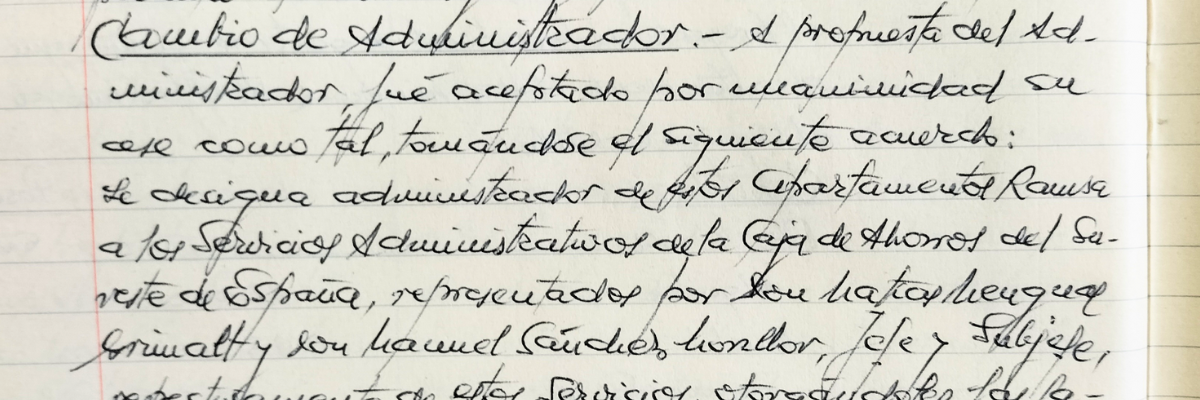 Cambio de Administrador.- A propuesta del Ad-
ministrador, fué aceptado por unanimidad su
cese como tal, tomándose el siguiente acuerdo:
Se designa administrador de estos Apartamentos Ramsa
a los Servicios Administrativos de la Caja de Ahorros del Su-
reste de España, representados por Don Matías
Grimalt y Don Manuel Sánchez Monllor, Jefe y Subjefe,
respectivamente de estos Servicios, otorgándoles las fa-